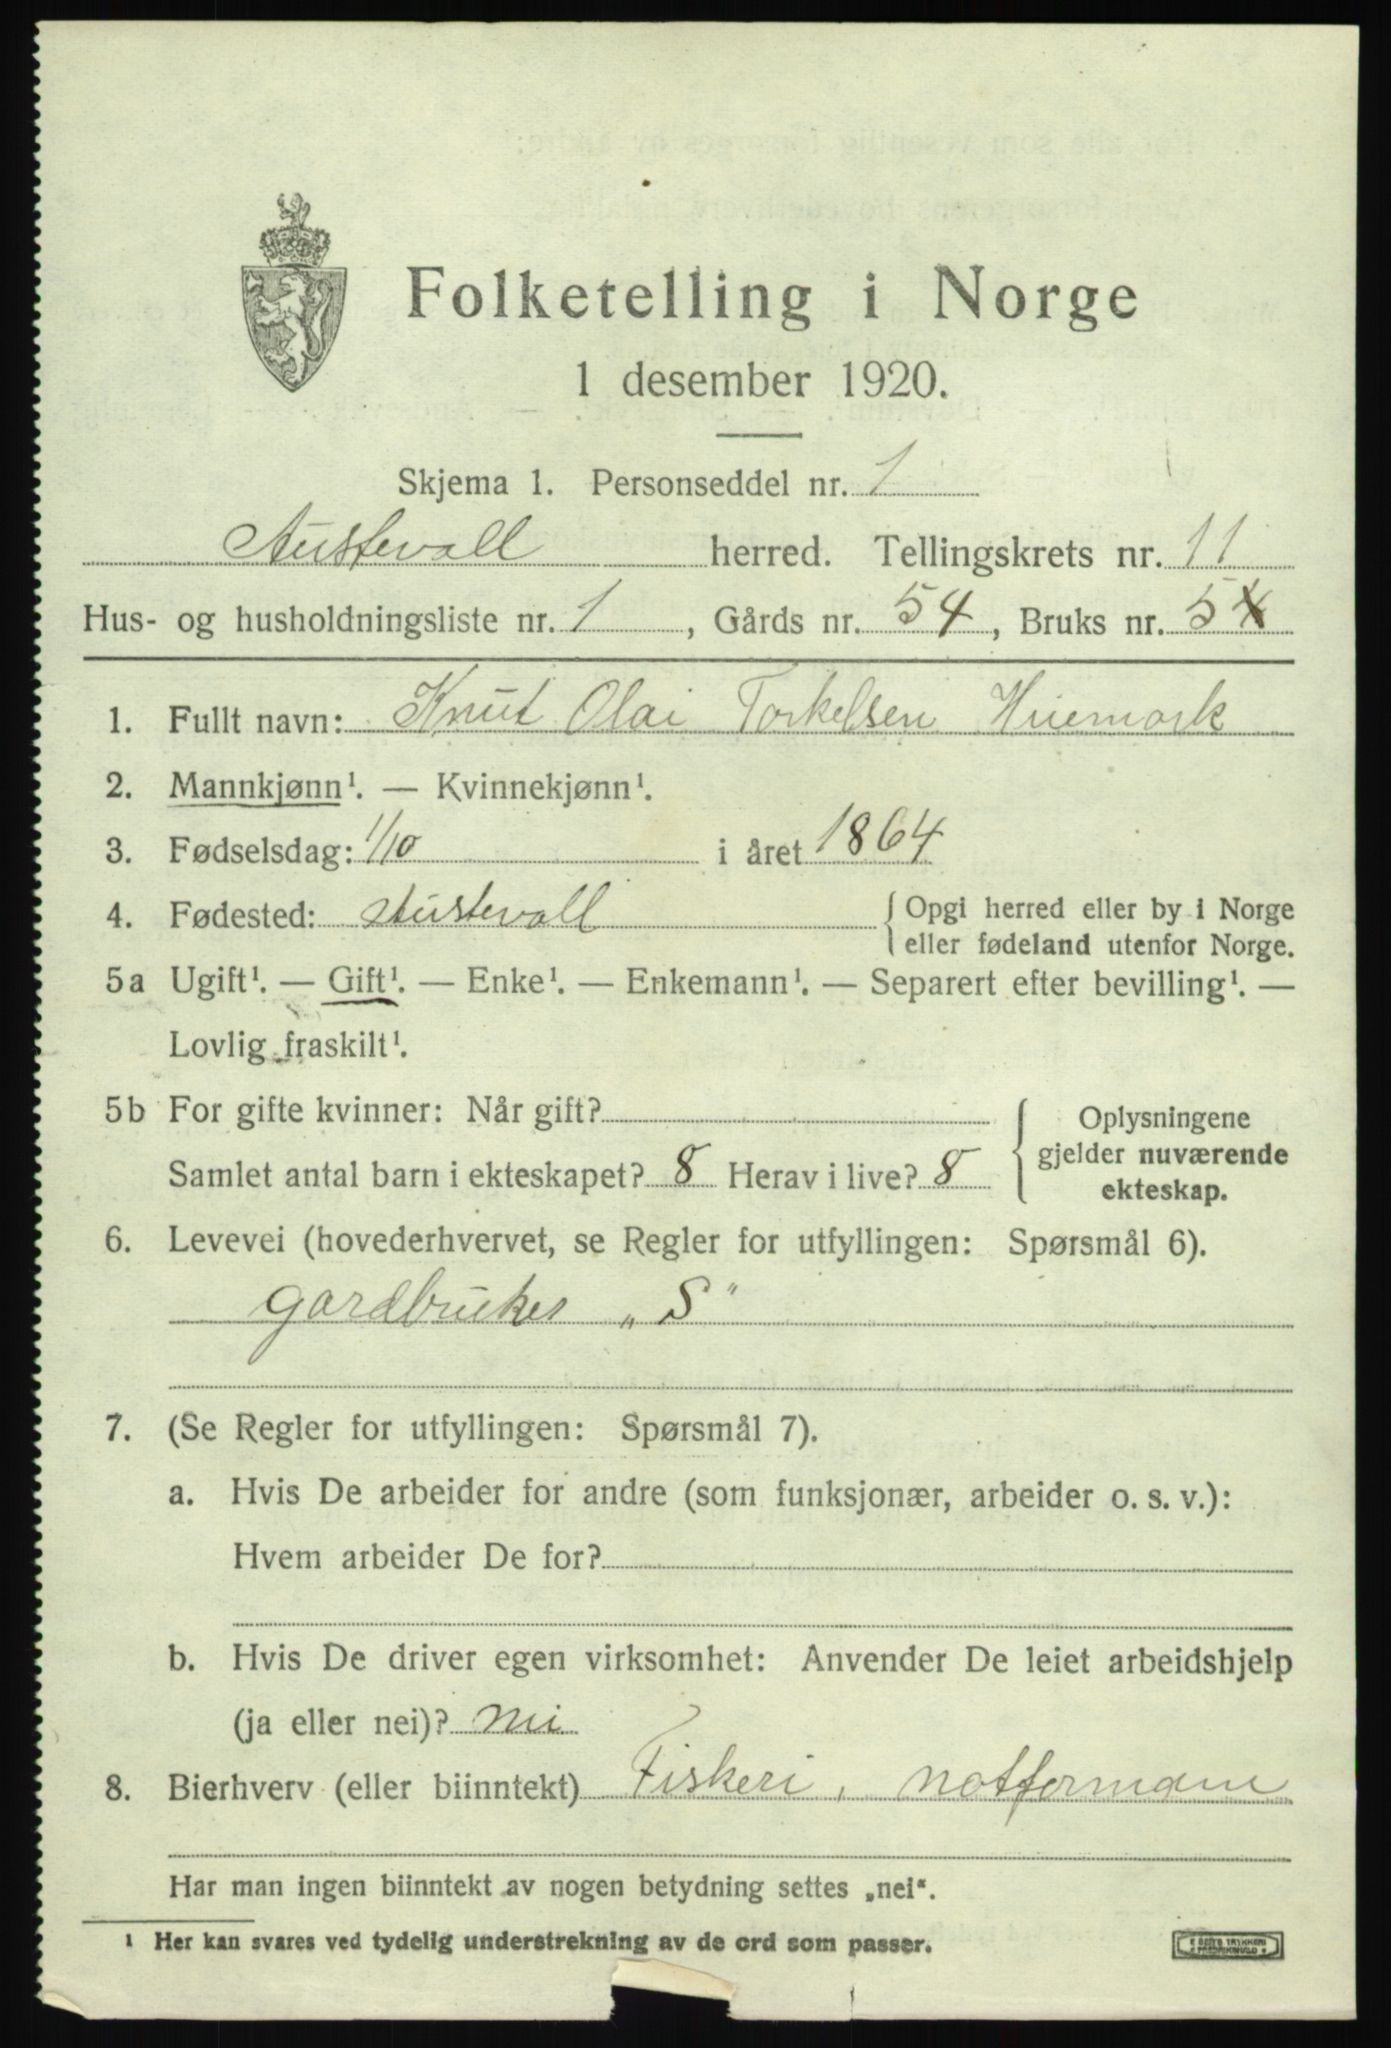 Folketelling i Norge
1 desember 1920.
Skjema 1. Personseddel nr. 1
Austevoll herred. Tellingskrets nr. 11
Hus- og husholdningsliste nr. 1, Gårds nr. 54, Bruks nr. 5
1. Fullt navn: Knut Olai Torkelsen
2. Mannkjønn¹. — Kvinnekjønn¹.
3. Fødselsdag: 1/10 i året 1864
4. Fødested: Austevoll { Opgi herred eller by i Norge
eller fødeland utenfor Norge.
5a Ugift¹. — Gift¹. — Enke¹. — Enkemann¹. — Separert efter bevilling¹. —
Lovlig fraskilt¹.
5b For gifte kvinner: Når gift?
Samlet antal barn i ekteskapet? 8 Herav i live? 8
{ Oplysningene
gjelder nuværende
ekteskap.
6. Levevei (hovederhvervet, se Regler for utfyllingen: Spørsmål 6).
gardbruker „S"
7. (Se Regler for utfyllingen: Spørsmål 7).
a. Hvis De arbeider for andre (som funksjonær, arbeider o. s. v.):
Hvem arbeider De for?
b. Hvis De driver egen virksomhet: Anvender De leiet arbeidshjelp
(ja eller nei)? nei
8. Bierhverv (eller biinntekt) Fiskeri, notformann
Har man ingen biinntekt av nogen betydning settes „nei".
¹ Her kan svares ved tydelig understrekning av de ord som passer.